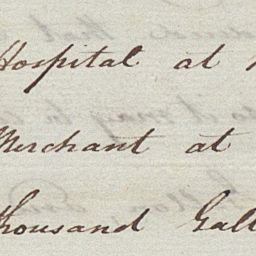 Hospital at
Merchant at
thousand Gall